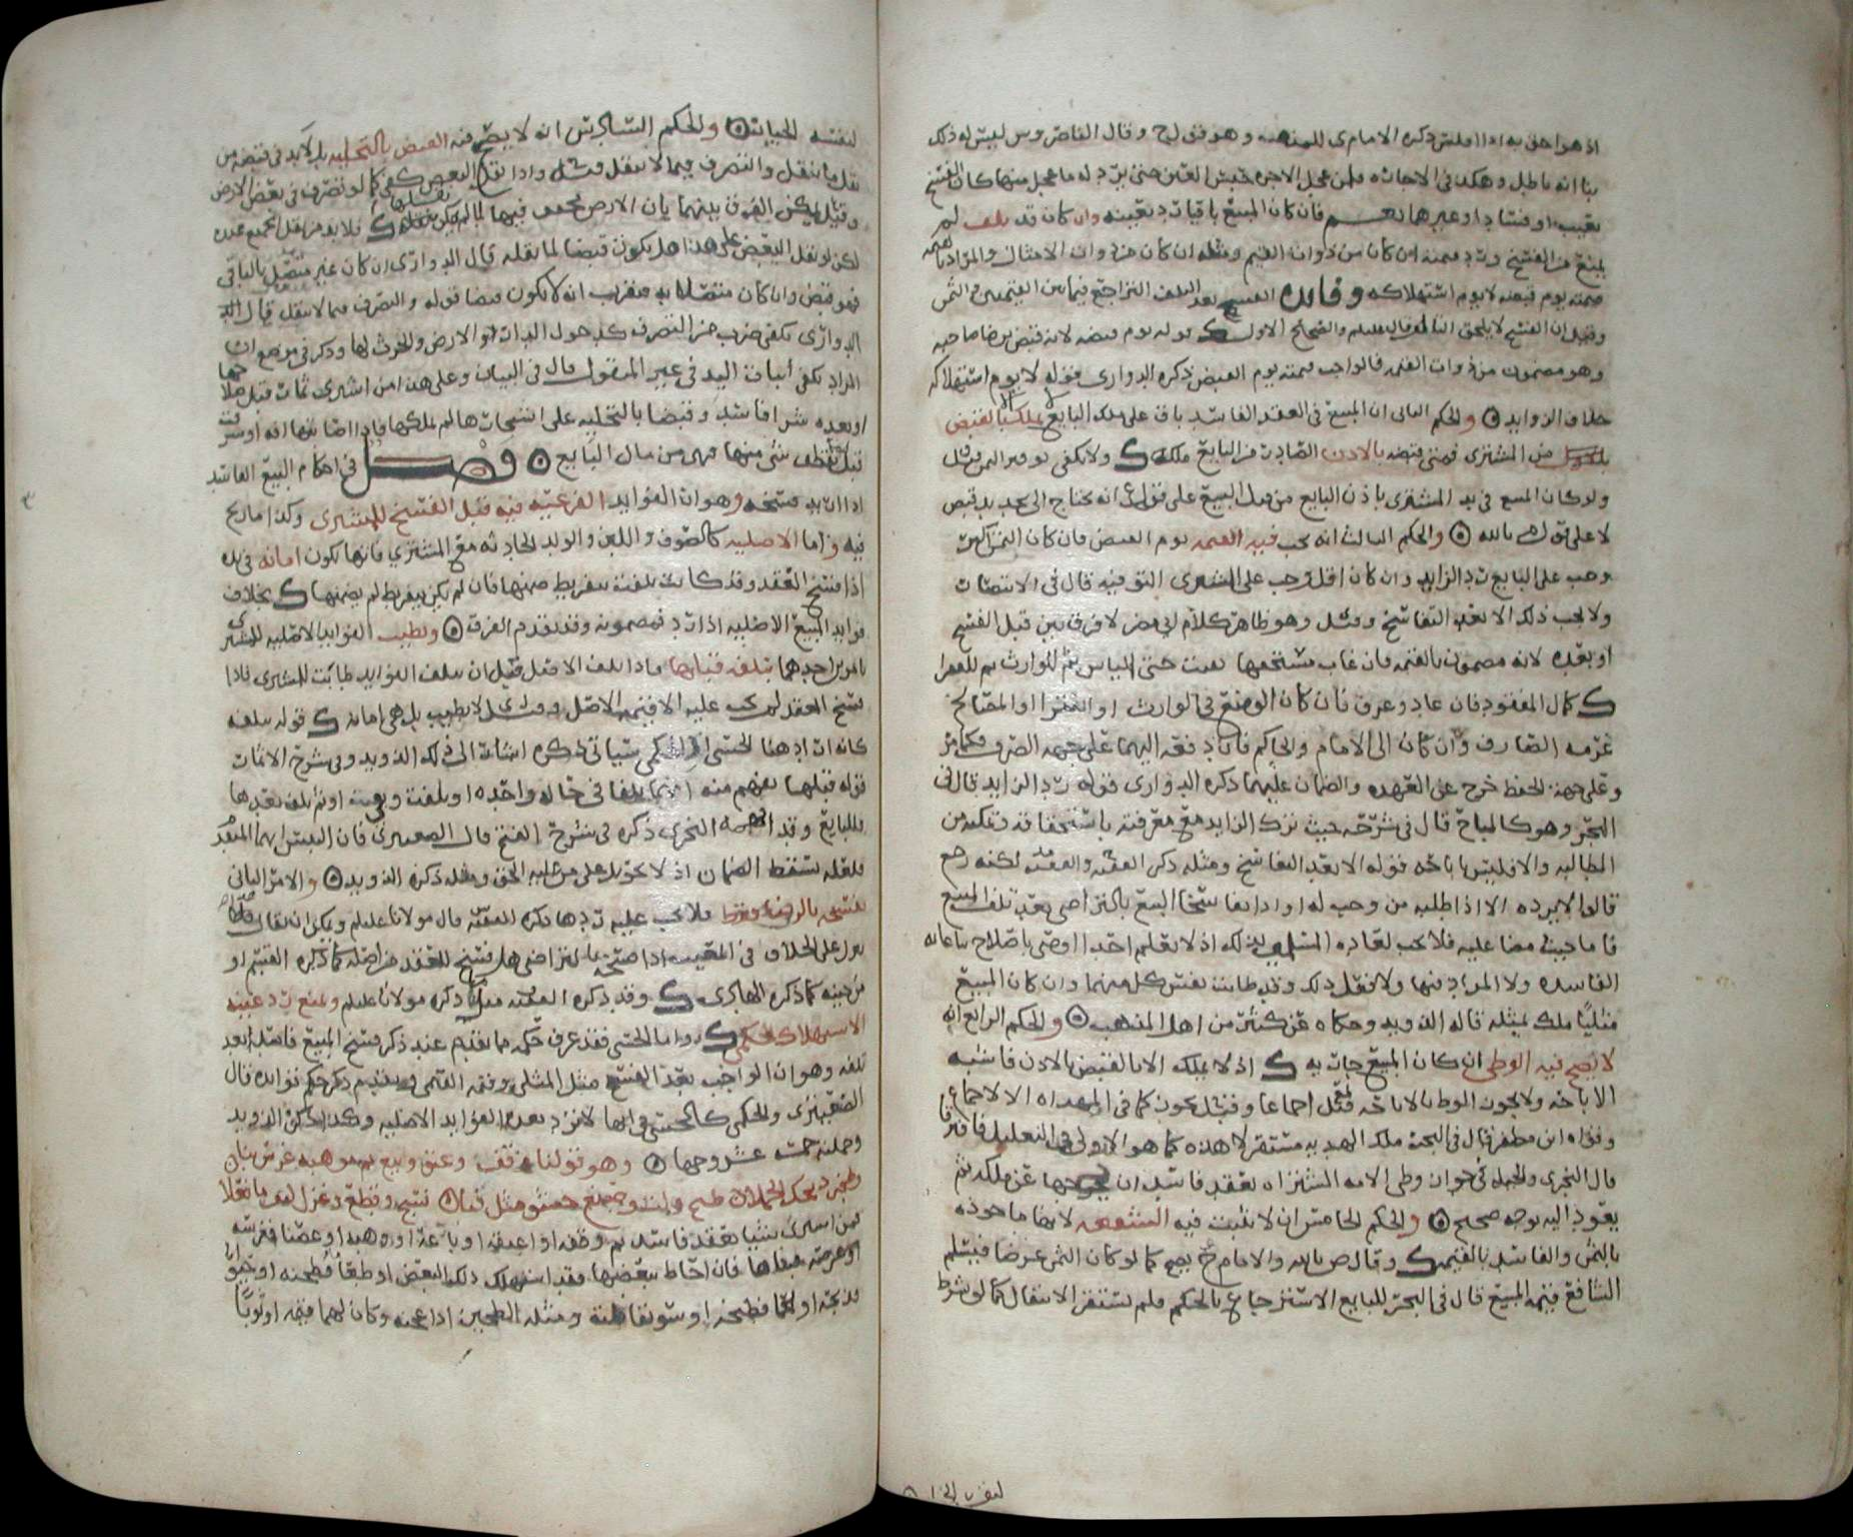 اذ هو احق به اذا افلس ذكره الامام ى للمذهب وهو فق ل ح وقال القاضى وس ليس له ذلك
بنا انه باطل وهكذا في الاجاره فلمن عجل الاجره حبس العين حتى يرد له ما عجل منها كان الفسخ
بعيب او فساد او غيرهما نعم فان كان المبيع باقيا رد بعينه وان كان قد تلف لم
يمنع من الفسخ ورد قيمته ان كان من ذوات القيم ومثله ان كان من ذوات الامثال والمراد
قيمته يوم قبضه لا يوم استهلاكه وفائده الفسخ بعد التلف التراجع فيما بين القيمتين والثمن
وقيل ان الفسخ لا يلحق التالف قال عليلم والصحيح الاول قوله يوم قبضه لانه قبض برضا صاحبه
وهو مضمون من ذوات القيمه فالواجب قيمته يوم القبض ذكره الدواري قوله لا يوم استهلاكه
خلاف الزوايد والحكم الثاني ان المبيع في العقد الفاسد باق على ملك البايع يملك بالقبض
من المشترى فمتى قبضه بالاذن الصادر من البايع ملكه ولا يكفى توفير الثمن وقيل
ولو كان المبيع في يد المشترى باذن البايع من قبل البيع على قول انه يحتاج الى تجديد قبض
لا على قول بالله والحكم الثالث انه يجب فيه القيمه يوم القبض فان كان الثمن اكثر
وجب على البايع رد الزايد وان كان اقل وجب على المشترى التوفيه قال في الانتصار
ولا يجب ذلك الا بعد التفاسخ وقيل وهو ظاهر كلام ابي مضر لا فرق بين قبل الفسخ
او بعده لانه مضمون بالقيمه فان غاب مستحقها بقيت حتى الياس ثم للوارث ثم للفقرا
كمال المفقود فان عاد وعرف فان كان الوضع في الوارث او الفقرا او المصالح
غرمه الصارف وان كان الى الامام والحاكم فان دفعه اليهما على جهه الصرف فكما مر
وعلى جهه الحفظ خرج عن العهده والضمان عليهما ذكره الدواري قوله رد الزايد قال في
البحر وهو كالمباح قال في شرحه حيث ترك الزايد مع معرفته باستحقاقه وتمكنه من
المطالبه والا فليس باباحه قوله الا بعد التفاسخ ومثله ذكر الفقيه والفقيه لكنه رجع
قالوا لا يبرده الا اذا طلبه من وجب له او اذا تفاسخا البيع بالتراضي بعد تلف المبيع
فاما حيث مضيا عليه فلا يجب لعاده المسلمين بذلك اذ لا نعلم احدا اوصى باصلاح بياعاته
الفاسده ولا المراد فيها ولا فعل ذلك وقد طابت نفس كل منهما وان كان المبيع
مثليا ملك بمثله قاله الذويد وحكاه عن كثير من اهل المذهب والحكم الرابع انه
لا يصح فيه الوطى ان كان المبيع جاريه اذ لا يملكه الا بالقبض بالاذن فاشبه
الاباحه ولا يجوز الوطء بالاباحه قيل اجماعا وقيل يجوز كما في المهداه الا لاجماع
وقواه ابن مظفر قال في البحر ملك الهديه مستقر لا هذه كما هو الاولى في التعليل فافترقا
قال النجرى والحيله في جواز وطى الامه المشتراه بعقد فاسد ان يخرجها عن ملكه ثم
يعود اليه بوجه صحيح والحكم الخامس ان لا تثبت فيه الشفعه لانها ماخوذه
بالثمن والفاسد بالقيمه وقال ص بالله والامام ح يصح كما لو كان الثمن عرضا فيسلم
الشافع قيمه المبيع قال في البحر للبايع الاسترجاع بالحكم فلم يستقر الانتقال كما لو شرط
لنفسه الخيار والحكم السادس انه لا يصح فيه القبض بالتخليه بل لا بد في قبضه من
نقل ما ينقل والتصرف فيما لا ينقل وقيل واذا نقل البعض كفى كما لو تصرف في بعض الارض
وقيل يمكن الفرق بينهما بان الارض فلا بد من نقل الجميع
لكن لو نقل البعض على هذا هل يكون قبضا لما نقله قال الدواري ان كان غير متصل بالباقي
فهو قبض وان كان متصلا به فيقرب انه لا يكون قبضا قوله والتصرف فيما لا ينقل قال
الدواري يكفى ضرب من التصرف كدخول الدار او الارض والحرث لها وذكر في موضع ان
المراد يكفى اثبات اليد في غير المنقول قال في البيان وعلى هذا من اشترى ثمارا قبل صلاحها
او بعده شرا فاسدا وقبضا بالتخليه على اشجارها لم يملكها فاذا اصابتها افه او سرقت
قبل قطف شئ منها فهى من مال البايع فصل في احكام البيع الفاسد
اذا اريد فسخه وهو ان الفوايد الفرعيه فيه قبل الفسخ للمشترى وكذا ما ربح
فيه واما الاصليه كالصوف واللبن والولد الحادثه مع المشترى فانها تكون امانه في يده
اذا فسخ العقد وقد كانت تلفت بتفريط ضمنها فان لم يكن بتفريط لم يضمنها بخلاف
فوايد المبيع الاصليه اذا رد فمضمونه وقد تقدم الفرق وتطيب الفوايد الاصليه للمشترى
بامرين احدهما بتلفه قبلها فاذا تلف الاصل قبل ان تتلف الفوايد طابت للمشترى فاذا
فسخ العقد لم يجب عليه الا قيمه الاصل وقيل لا يطيب بل هى امانه قوله بتلفه
كانه اراد هنا الحسى اذ الحكمي سياتي ذكره اشار الى ذلك الذويد وفي شرح الاثمار
قوله قبلها يفهم منه انهما لو تلفا في حاله واحده او تلفت وبقيت او ثم تلف بعدها
للبايع وقد افهمه النجرى ذكره في شرح الفتح قال الصعيترى فان التبس ايهما المتقدم
فلعله يسقط الضمان اذ لا تحويل على من عليه الحق ومثله ذكره الذويد والامر الثاني
بفسخه بالرضا فقط فلا يجب عليه ردها ذكره الفقيه قال مولانا عليلم ويمكن ان يقال
على الخلاف في المعيب اذا فسخ بالتراضى هل فسخ للعقد من اصله كما ذكره الفقيه او
من حينه كما ذكره الهاجرى وقد ذكره الفقيه مثلما ذكره مولانا عليلم ويمنع رد عينه
الاستهلاك الحكمي واما الحسى فقد عرف حكمه مما تقدم عند ذكر فسخ المبيع فاسدا بعد
تلفه وهو ان الواجب بعد الفسخ مثل المثلى وقيمه القيمى وتقدم ذكر حكم فوايده قال
الصعيترى والحكمي كالحسى في انها لا ترد بعده الفوايد الاصليه وكذا ذكره الذويد
وجملته خمسه عشر وجها وهو قولنا وقف وعتق وبيع ثم موهبه غرس بنا
وطحن ذبحك الحملان طبخ ولت وصبغ حشو مثل قبا نسج وقطع وغزل
فمن اشترى شيا بعقد فاسد ثم وقفه او اعتقه او باعه او وهبه او غصنا فغرسه
او عرصه فبناها فان احاط ببعضها فقد استهلك ذلك البعض او طعاما فطحنه او حيوانا
فذبحه او لحما فطبخه او سويقا فلته ومثله الطحين اذا عجنه وكان لهما قيمه او ثوبا